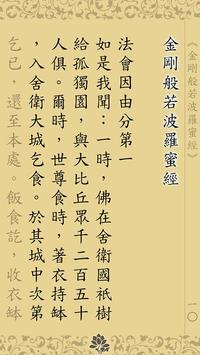 《金剛般若波羅蜜經》
一〇
金剛般若波羅蜜經
法會因由分第一
如是我聞：一時，佛在舍衛國祇樹
給孤獨園，與大比丘眾千二百五十
人俱。爾時，世尊食時，著衣持缽
，入舍衛大城乞食。於其城中次第
乞已，還至本處。飯食訖，收衣缽